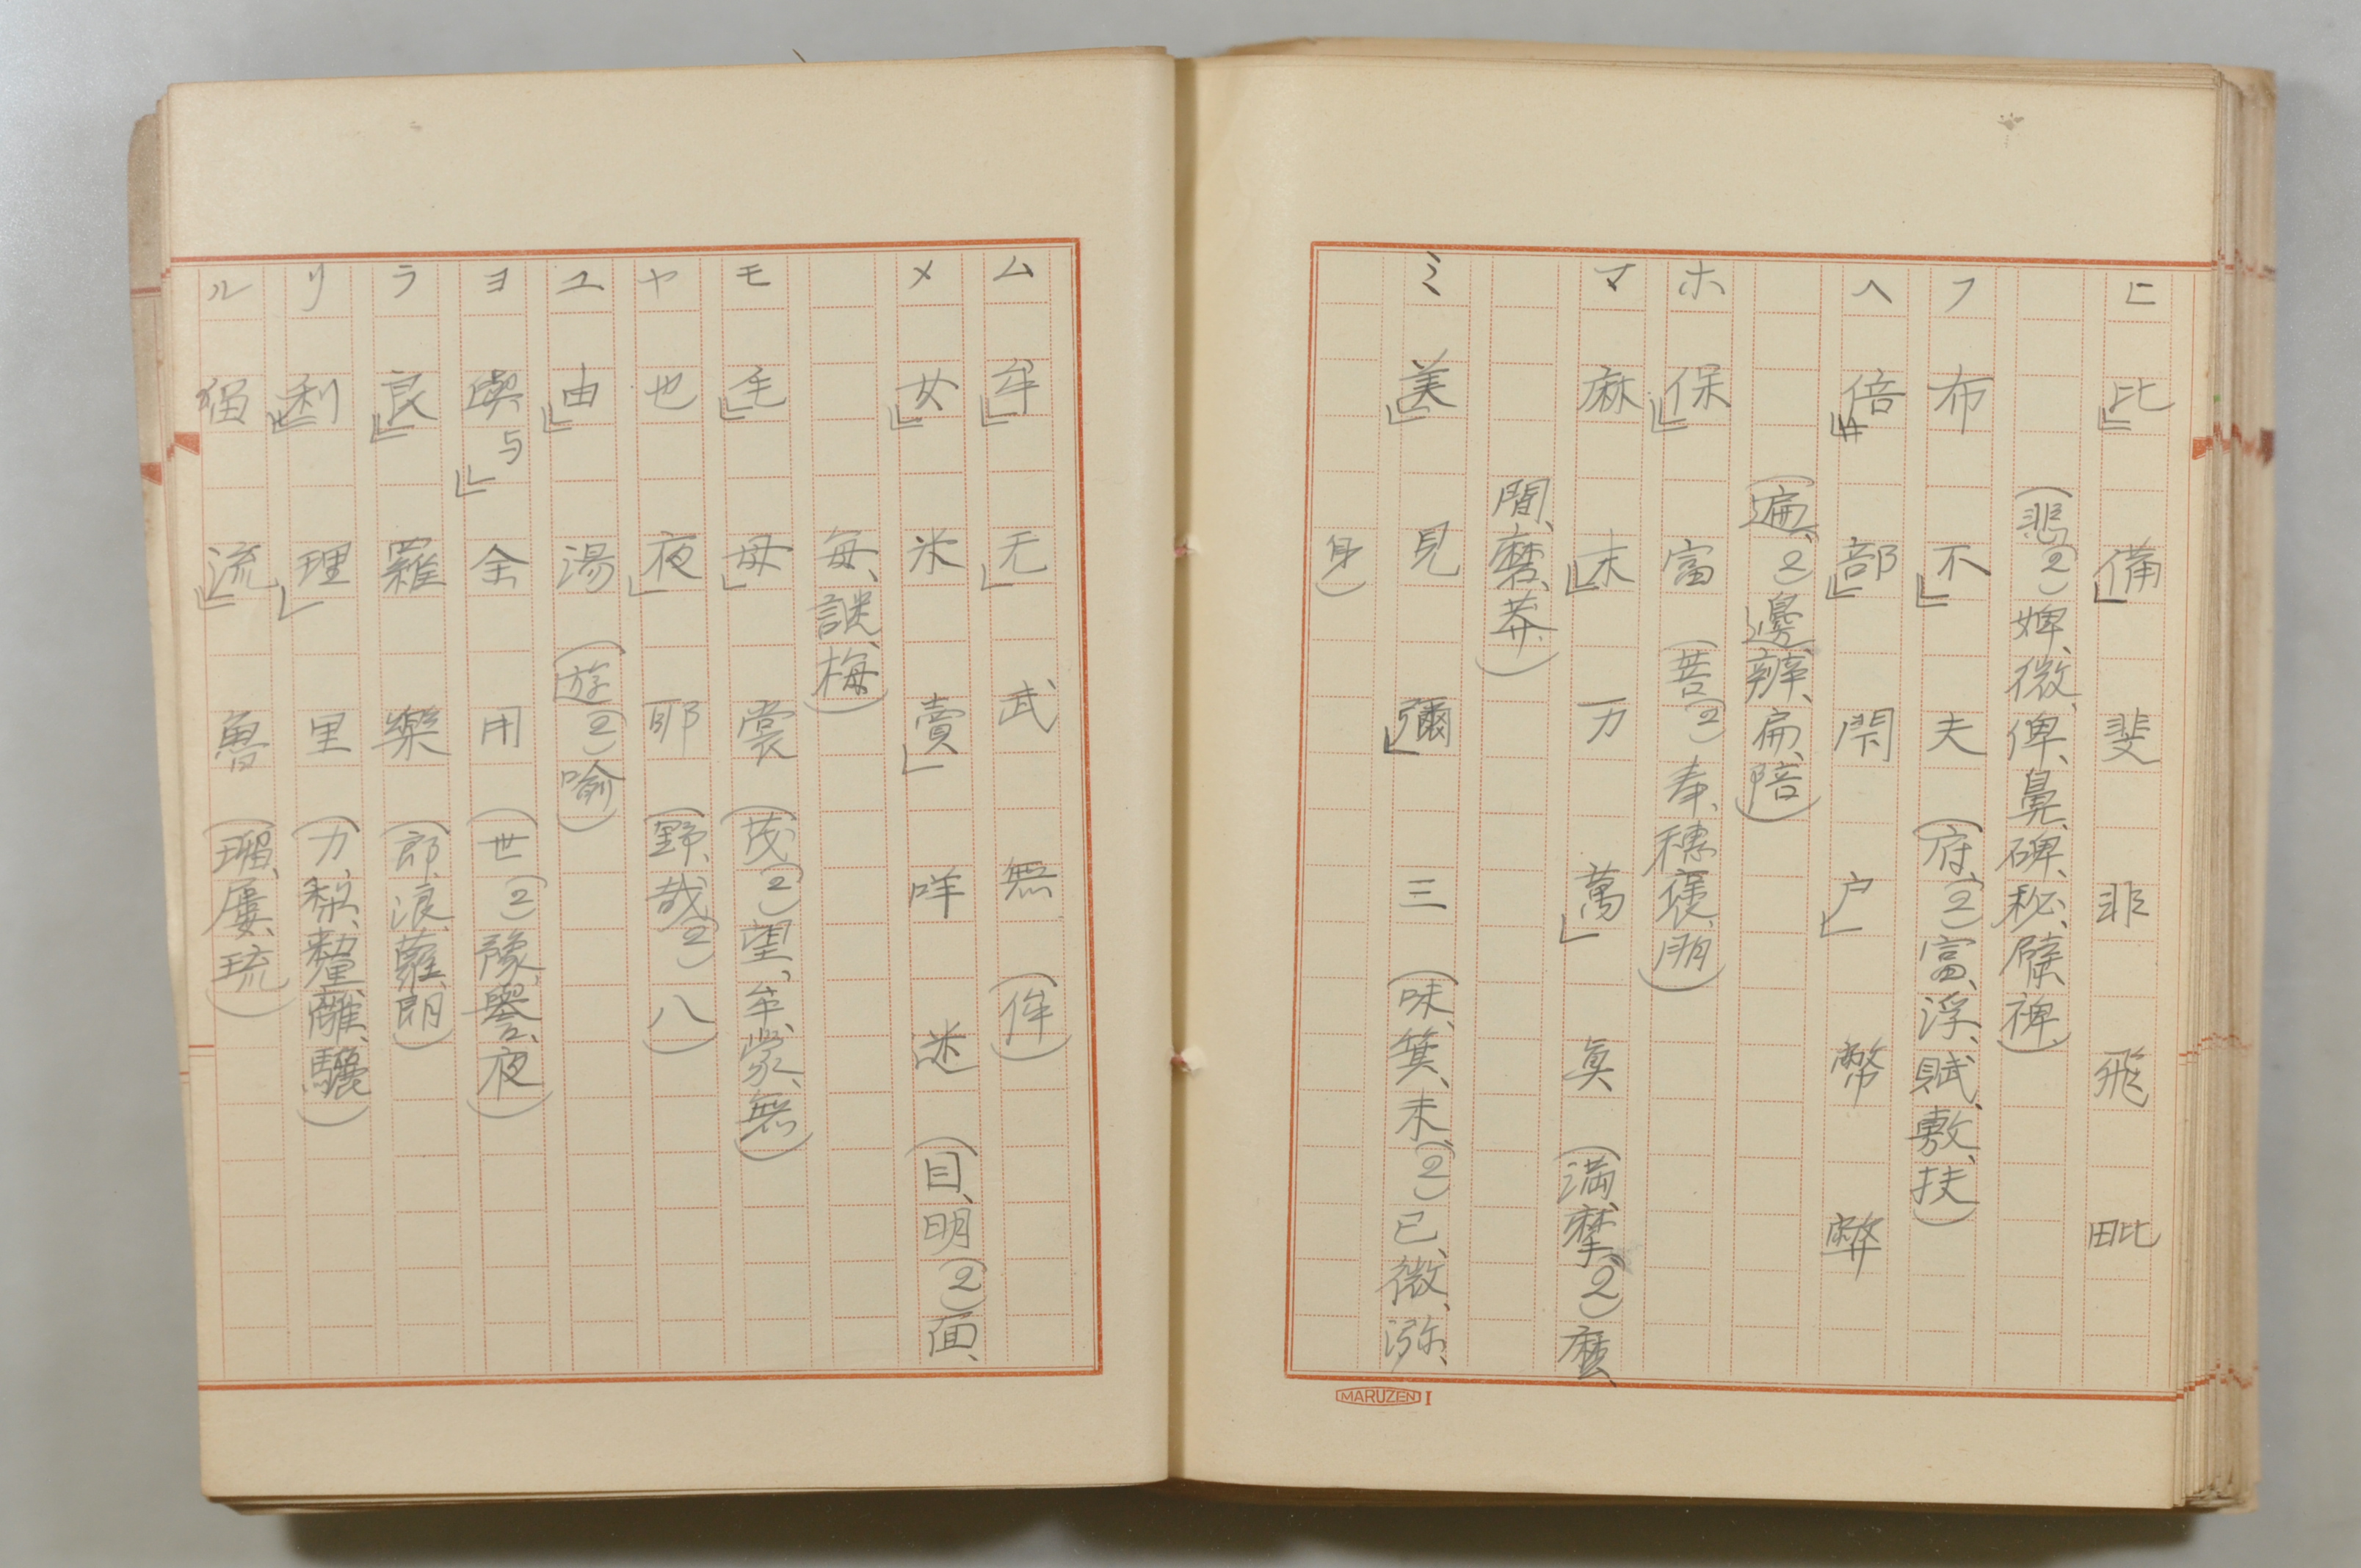 ヒ 比』 備』 斐 非 飛 毗
(悲(2)婢、微、俾、鼻、碑、秘、臂、裨、)
フ 布 不』 夫 (府、(2)富、浮、賦、敷、扶)
ヘ 倍』 部』 閇 户」 幣 弊
(遍、(2)邊、辨、扁、陪)
ホ 保』 富 (菩(2)奉、穗、褒、朋)
マ 麻 末』 万 萬」 真 (満、摩、(2)麼、
間、磨、莽、)
ミ 美』 見 彌』 三 (味、箕、未、(2)已、微、弥、
身)
MARUZEN I
ム 牟』 无」 武 無 (侔)
メ 女』 米 賣」 咩 迷 (目、明(2)面、
毎、謎、梅)
モ 毛』 母」 裳 (茂、(2)望、牟、蒙、無)
ヤ 也 夜」 耶 (野、哉(2)八)
ユ 由』 湯 (遊(2)喻)
ヨ 与』 余 用 (世(2)豫、譽、夜)
ラ 良』 羅 樂 (郎、浪、蘿、朗)
リ 利』 理」 里 (力、梨、釐、離、驪)
ル 留 流』 魯 (瑠、屢、琉)